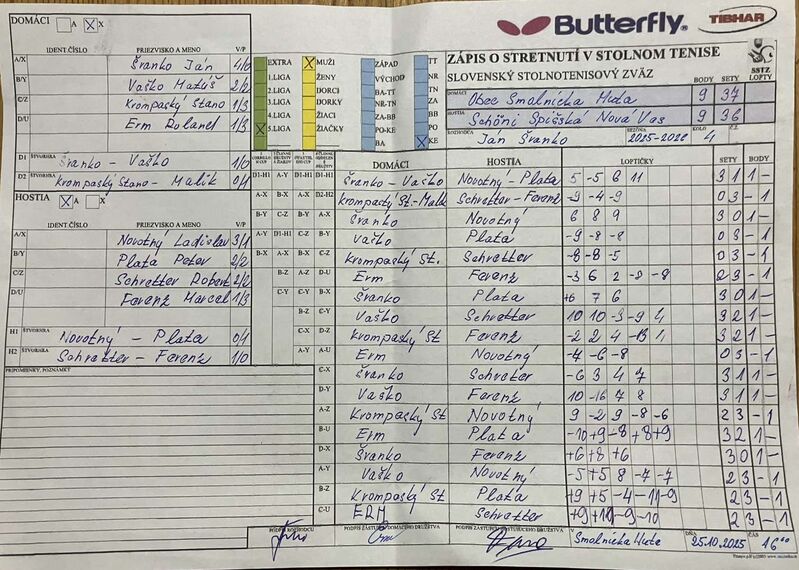 DOMÁCI A X
Butterfly TIBHAR
IDENT.ČÍSLO PRIEZVISKO A MENO V/P
A/X Švanko Ján 4/0
B/Y Vaško Matúš 2/2
C/Z Krompaský Stano 1/3
D/U Erm Roland 1/3
D1 ŠTVORHRA Švanko - Vaško 1/0
D2 ŠTVORHRA Krompaský Stano - Malik 0/1
HOSTIA X A X
IDENT.ČÍSLO PRIEZVISKO A MENO V/P
A/X Novotný Ladislav 3/1
B/Y Plata Peter 2/2
C/Z Schretter Robert 2/2
D/U Ferenz Marcel 1/3
H1 ŠTVORHRA Novotný - Plata 0/1
H2 ŠTVORHRA Schretter - Ferenz 1/0
PRIPOMIENKY, POZNÁMKY
EXTRA X MUŽI ZÁPAD TT
1.LIGA ŽENY VÝCHOD NR
2.LIGA DORCI BA-TT TN
3.LIGA DORKY NR-TN ZA
4.LIGA ŽIACI ZA-BB BB
X 5.LIGA ŽIAČKY PO-KE PO
BA X KE
ZÁPIS O STRETNUTÍ V STOLNOM TENISE
SLOVENSKÝ STOLNOTENISOVÝ ZVÄZ
SSTZ
BODY SETY LOPTY
DOMÁCI Obec Smolnícka Huta 9 37
HOSTIA Schöni Spišská Nová Ves 9 36
ROZHODCA Ján Švanko SEZÓNA 2025-2026 KOLO 4 Č.Z.
DOMÁCI HOSTIA LOPTIČKY SETY BODY
D1-H1 A-Y D1-H1 D1-H1 Švanko - Vaško Novotný - Plata 5 -5 6 11 3 1 1 -
A-X B-X D2-H2 Krompaský St.-Malik Schretter - Ferenz -9 -4 -9 0 3 - 1
B-Y C-Z A-X Švanko Novotný 6 8 9 3 0 1 -
A-Y D1-H1 B-Y Vaško Plata -9 -8 -8 0 3 - 1
B-X A-X C-Z Krompaský St. Schretter -8 -8 -5 0 3 - 1
B-Z A-Z D-U Erm Ferenz -3 6 2 -9 -8 2 3 - 1
C-Y B-X A-Y Švanko Plata +6 7 6 3 0 1 -
B-Z Vaško Schretter 10 10 -3 -9 4 3 2 1 -
C-X D-Z Krompaský St Ferenz -2 2 4 -13 4 3 2 1 -
A-Y A-U Erm Novotný -7 -6 -8 0 3 - 1
C-X Švanko Schreter -6 3 4 7 3 1 1 -
D-Y Vaško Ferenz 10 -16 7 8 3 1 1 -
A-Z Krompaský St Novotný 9 -2 9 -8 -6 2 3 - 1
B-U Erm Plata -10 +9 -8 +8 +9 3 2 1 -
D-X Švanko Ferenz +6 +8 +6 3 0 1 -
A-Y Vaško Novotný -5 +5 8 -7 -7 2 3 - 1
B-Z Krompaský St Plata +9 +5 -4 -11 -9 2 3 - 1
C-U ERM Schretter +9 +10 -9 -10 2 3 - 1
PODPIS ROZHODCU PODPIS ZÁSTUPCU DOMÁCEHO DRUŽSTVA PODPIS ZÁSTUPCU HOSŤUJÚCEHO DRUŽSTVA V Smolnícka Huta DŇA 25.10.2025 ČAS 16⁰⁰